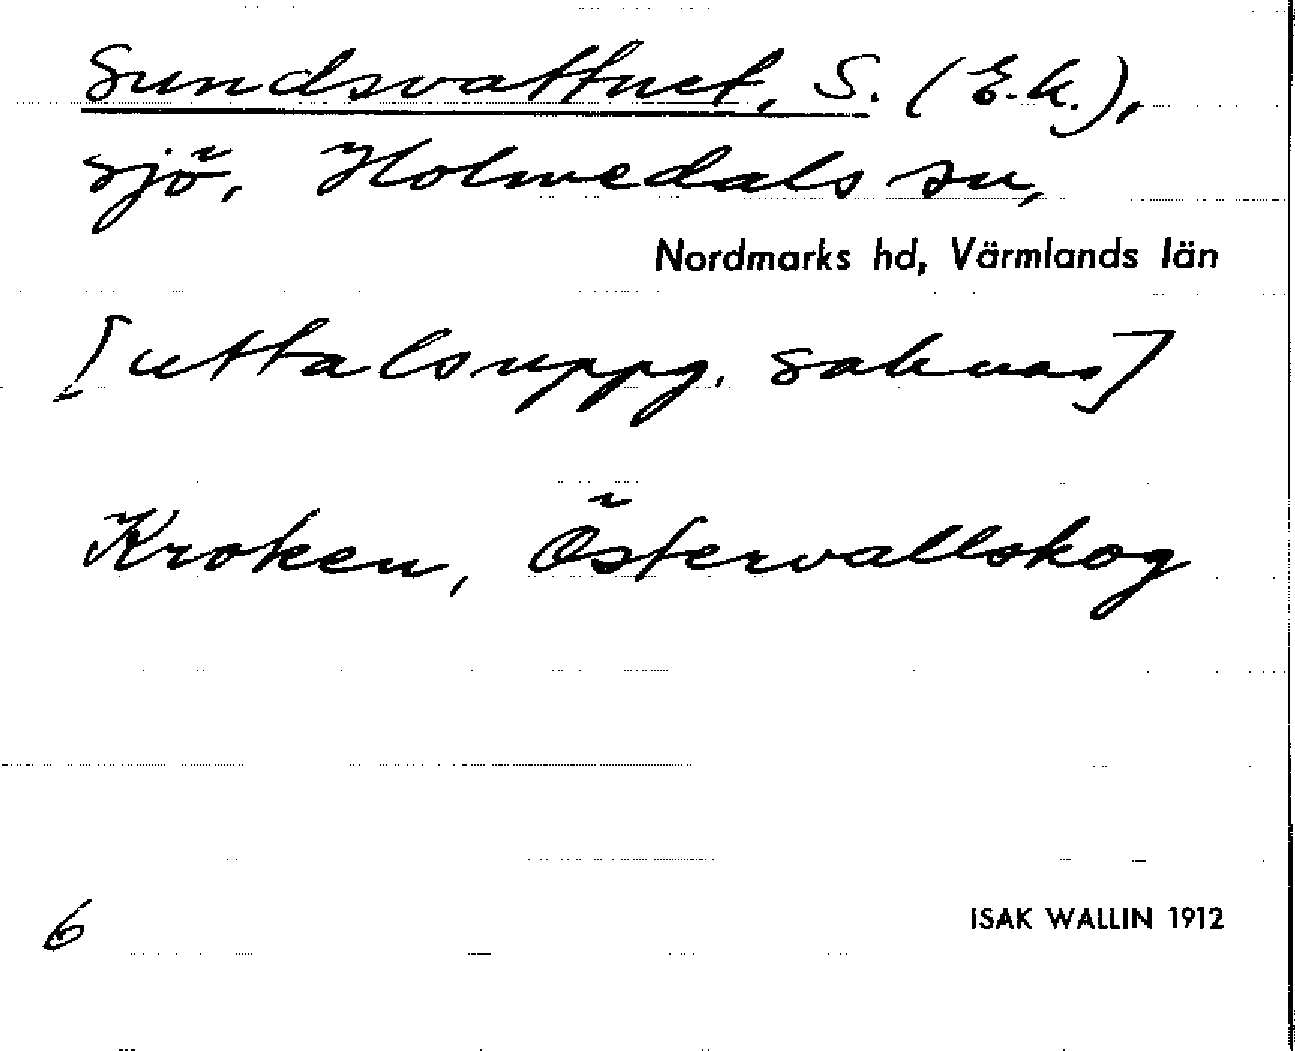 Sundsvattnet, S. (E.k.),
sjö, Holmedals sn,
Nordmarks hd, Värmlands län
[uttalsuppg. saknas]
Kroken, Östervallskog
6
ISAK WALLIN 1912